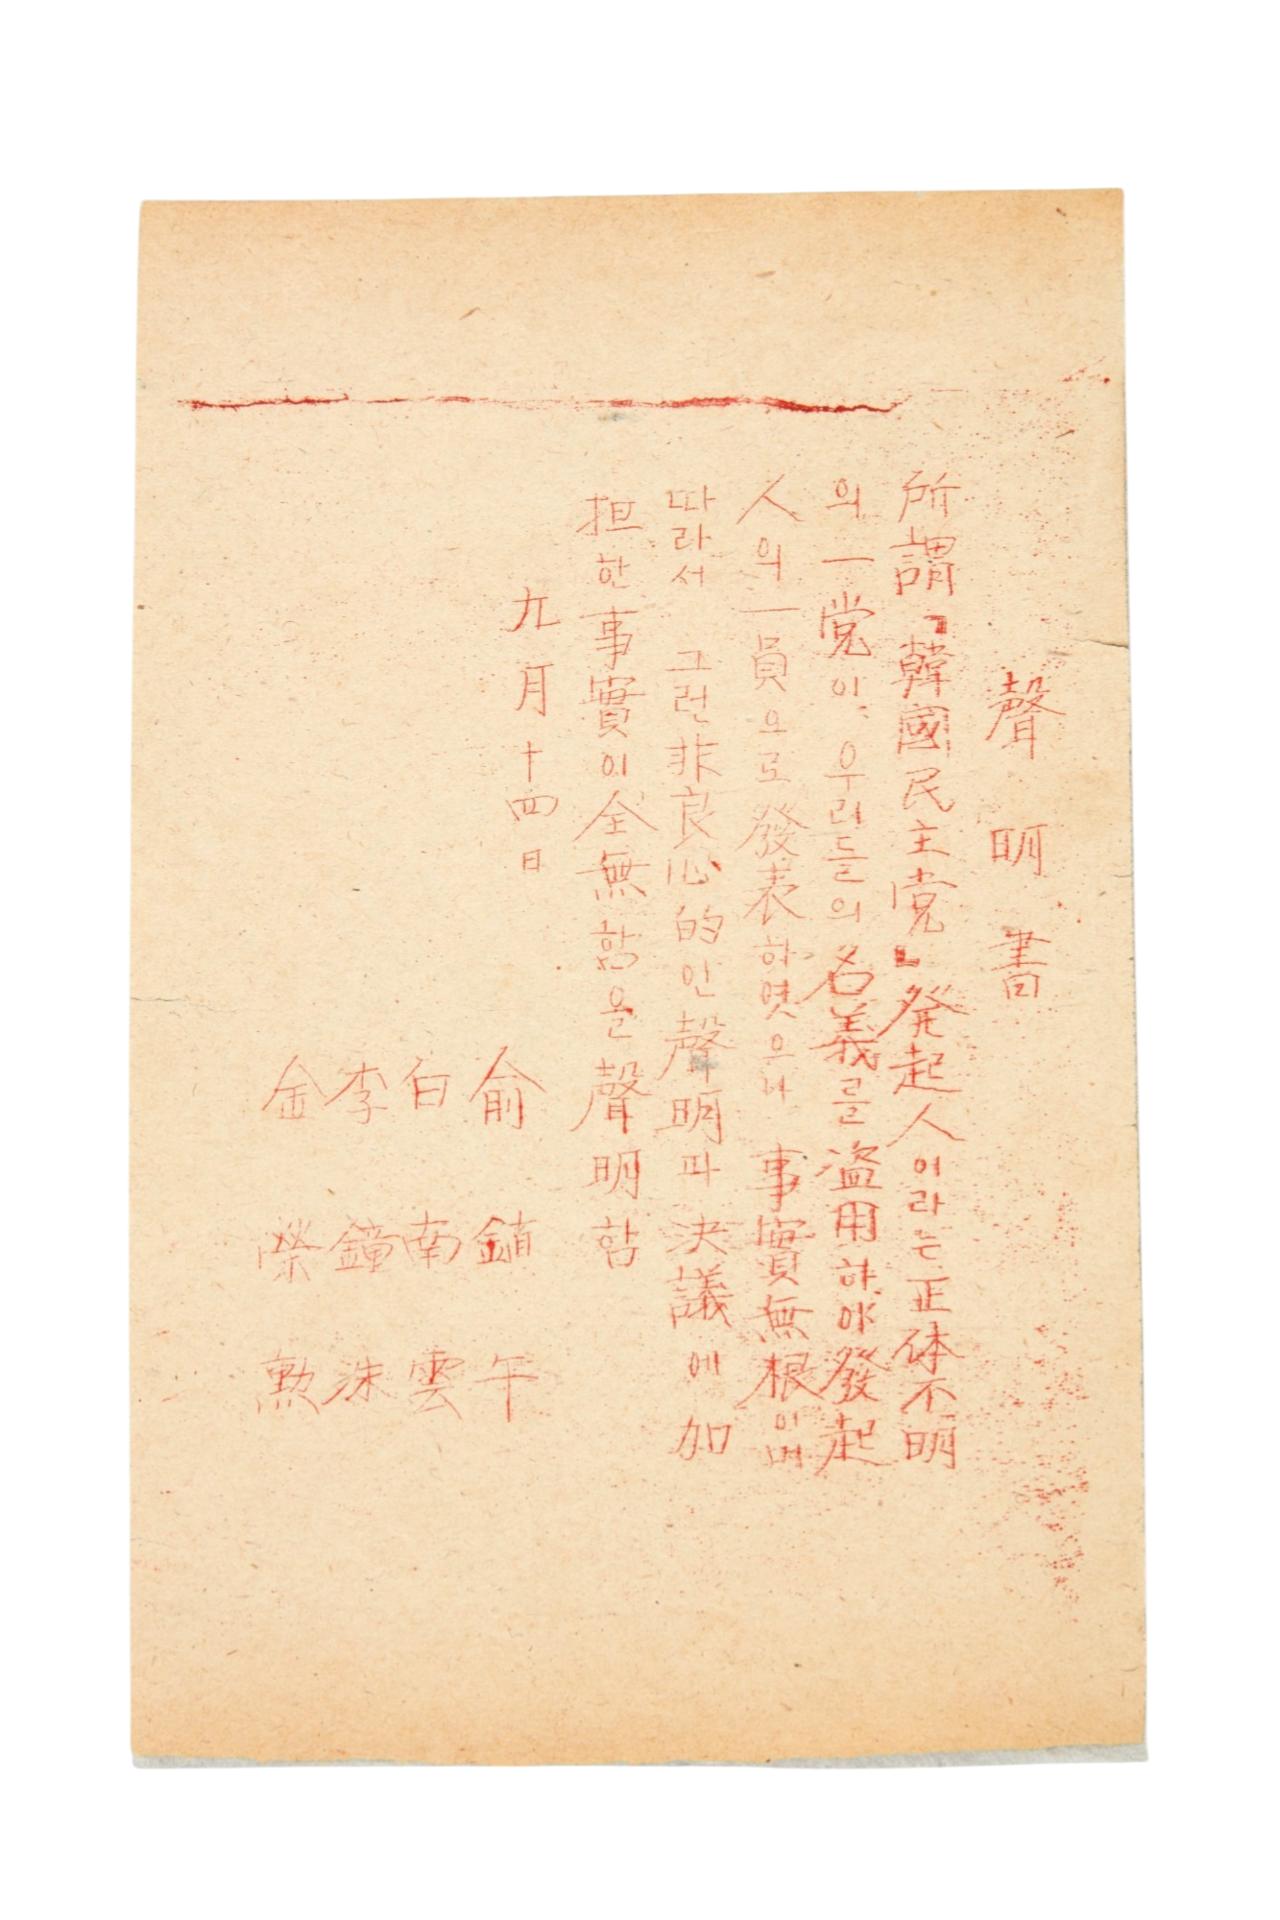 聲明書
所謂「韓國民主党」発起人이라는正体不明
의一党이, 우리들의名義를盜用하야發起
人의一員으로發表하엿으나 事實無根이며
따라서 그런非良心的인聲明과決議에加
担한事實이全無함을聲明함
九月十四日
俞鎭午
白南雲
李鐘洙
金榮勲